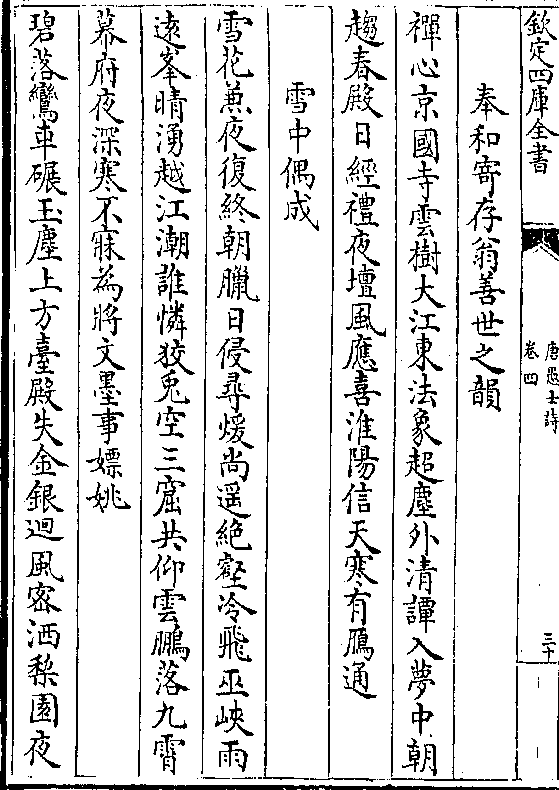 欽定四庫全書
唐愚士詩
卷四
三十
奉和寄存翁善世之韻
禪心京國寺雲樹大江東法象超塵外清譚入夢中朝
趨春殿日經禮夜壇風應喜淮陽信天寒有鴈通
雪中偶成
雪花兼夜復終朝臘日侵尋煖尚遥絶壑冷飛巫峽雨
逺峯晴湧越江潮誰憐狡兎空三窟共仰雲鵬落九霄
幕府夜深寒不寐為將文墨事嫖姚
碧落鸞車碾玉塵上方臺殿失金銀迴風密洒梨園夜